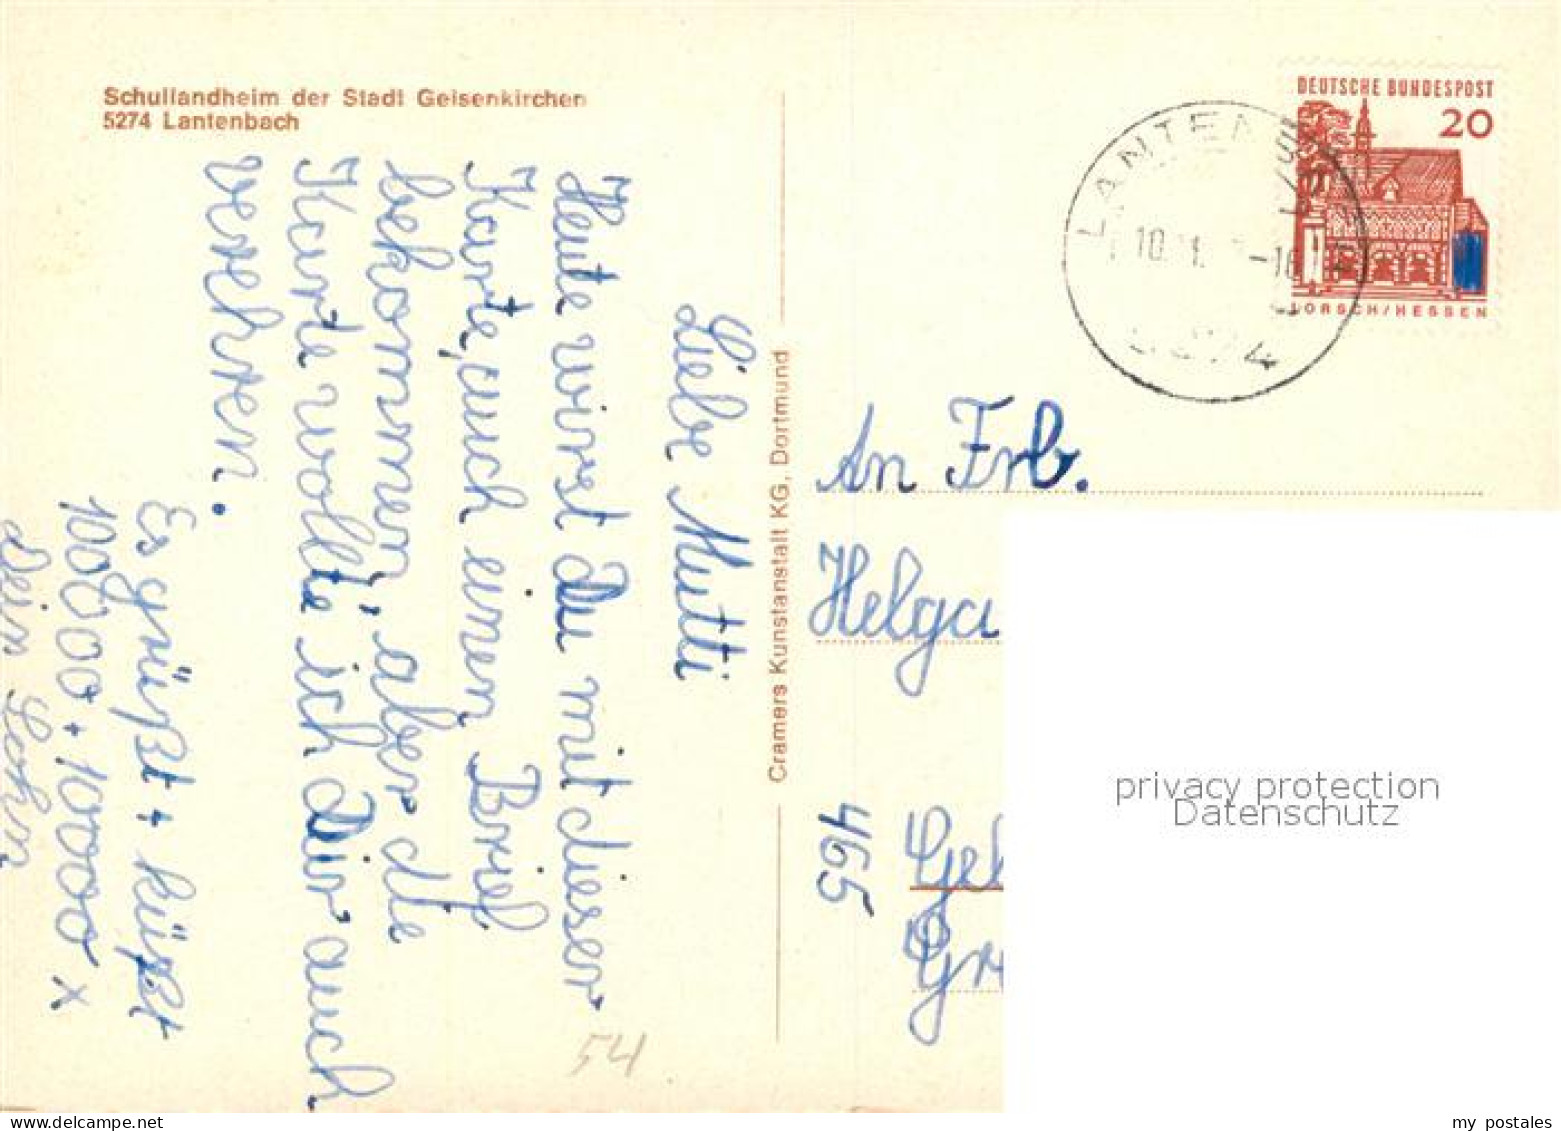 Schullandheim der Stadt Gelsenkirchen
5274 Lantenbach
Liebe Mutti
Heute wirst Du mit dieser
Karte, auch einen Brief
bekommen, aber die
Karte wollte ich Dir auch
verehren.
Es grüßt + küßt
1000000 + 100000 x
Dein Sohn
54
Cramers Kunstanstalt KG, Dortmund
DEUTSCHE BUNDESPOST
20
LORSCH/HESSEN
LANTEN
10.
An Frb.
Helga
465
privacy protection
Datenschutz
my postales